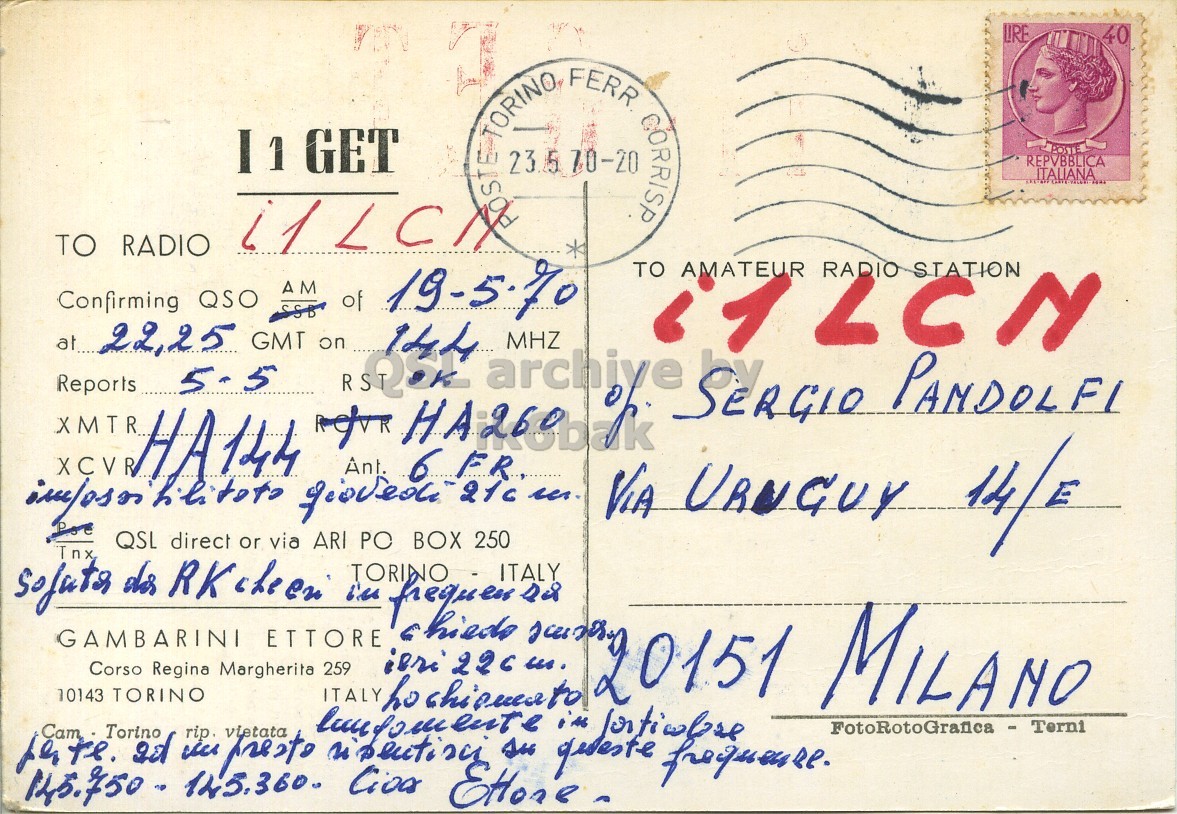 LIRE 40
POSTE TORINO FERR. CORRISP
23.5.70-20
POSTE
REPVBBLICA
ITALIANA
I 1 GET
TO RADIO i1LCN
Confirming QSO AM SSB of 19-5-70
at 22,25 GMT on 144 MHZ
Reports 5-5 RST OK
XMTR RCVR HA260
XCVR HA144 Ant. 6 FR.
giovedì 21 c m.
Pse
Tnx QSL direct or via ARI PO BOX 250
TORINO - ITALY
da RK che eri in frequenza
chiedo scusa.
ieri 22 c m.
ho chiamato
lungamente in particolare
per te. ad un presto risentirci su queste frequenze.
145.750 - 145.360 - Ciao Ettore -
GAMBARINI ETTORE
Corso Regina Margherita 259
10143 TORINO ITALY
Cam - Torino rip. vietata
TO AMATEUR RADIO STATION
i1LCN
op. SERGIO PANDOLFI
VIA URUGUY 14/E
20151 MILANO
FotoRotoGrafica - Terni
QSL archive by
ik6bak